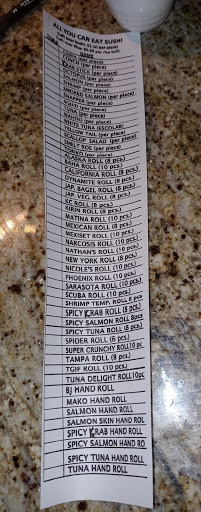 ALL YOU CAN EAT SUSHI
NAME
(per piece)
CONCH (per piece)
CRAB STICK (per piece)
OCTOPUS (per piece)
SALMON (per piece)
SHRIMP (per piece)
SMOKED SALMON (per piece)
SNAPPER (per piece)
(per piece)
(per piece)
(per piece)
WHITE TUNA (ESCOLAR)
YELLOW TAIL (per piece)
SCALLOP SALAD (per piece)
SMELT ROE (per piece)
(per piece)
ALASKA ROLL (8 pcs.)
BAHA ROLL (10 pcs.)
CALIFORNIA ROLL (8 pcs.)
DYNAMITE ROLL (8 pcs.)
JAP. BAGEL ROLL (8 pcs.)
JAP. VEG. ROLL (8 pcs.)
KC ROLL (8 pcs.)
KIRIN ROLL (8 pcs.)
MATINA ROLL (10 pcs.)
MEXICAN ROLL (8 pcs.)
MEXISET ROLL (10 pcs.)
NARCOSIS ROLL (10 pcs.)
NATHAN'S ROLL (10 pcs.)
NEW YORK ROLL (8 pcs.)
NICOLE'S ROLL (10 pcs.)
PHOENIX ROLL (10 pcs.)
SARASOTA ROLL (10 pcs.)
SCUBA ROLL (10 pcs.)
SHRIMP TEMP. ROLL 8 pcs
SPICY KRAB ROLL (8 pcs.)
SPICY SALMON ROLL 8pcs
SPICY TUNA ROLL (8 pcs.)
SPIDER ROLL (6 pcs.)
SUPER CRUNCHY ROLL10 pc
TAMPA ROLL (8 pcs.)
TGIF ROLL (10 pcs.)
TUNA DELIGHT ROLL10pc
BJ HAND ROLL
MAKO HAND ROLL
SALMON HAND ROLL
SALMON SKIN HAND ROL
SPICY KRAB HAND ROLL
SPICY SALMON HAND RO
SPICY TUNA HAND ROLL
TUNA HAND ROLL